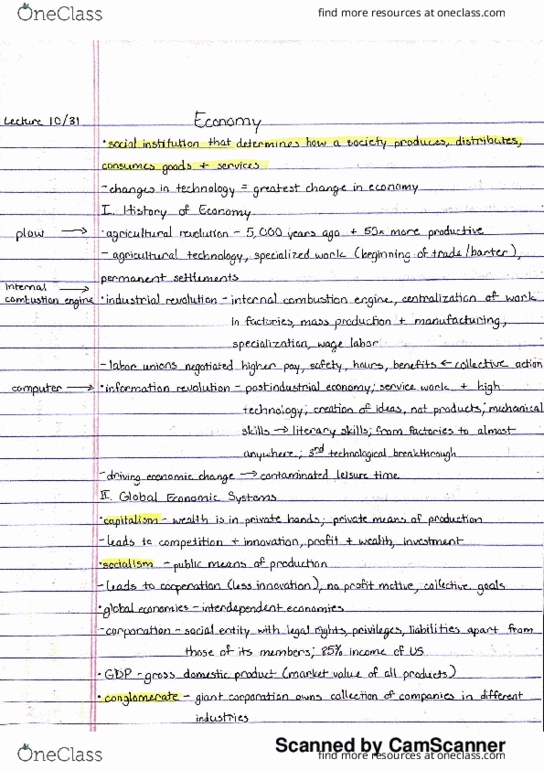 OneClass
find more resources at oneclass.com
Lecture 10/31
Economy
• social institution that determines how a society produces, distributes,
consumes goods + services
- changes in technology = greatest change in economy
I. History of Economy
plow →
• agricultural revolution - 5,000 years ago + 50x more productive
- agricultural technology, specialized work (beginning of trade/barter),
permanent settlements
internal
combustion engine →
• industrial revolution - internal combustion engine, centralization of work
in factories, mass production + manufacturing,
specialization, wage labor
- labor unions negotiated higher pay, safety, hours, benefits ← collective action
computer →
• information revolution - postindustrial economy; service work + high
technology; creation of ideas, not products; mechanical
skills → literary skills; from factories to almost
anywhere; 3rd technological breakthrough
- driving economic change → contaminated leisure time
II. Global Economic Systems
• capitalism - wealth is in private hands; private means of production
- leads to competition + innovation, profit + wealth, investment
• socialism - public means of production
- leads to cooperation (less innovation), no profit motive, collective goals
• global economies - interdependent economies
- corporation - social entity with legal rights, privileges, liabilities apart from
those of its members; 85% income of US
• GDP - gross domestic product (market value of all products)
• conglomerate - giant corporation owns collection of companies in different
industries
Scanned by CamScanner
OneClass
find more resources at oneclass.com